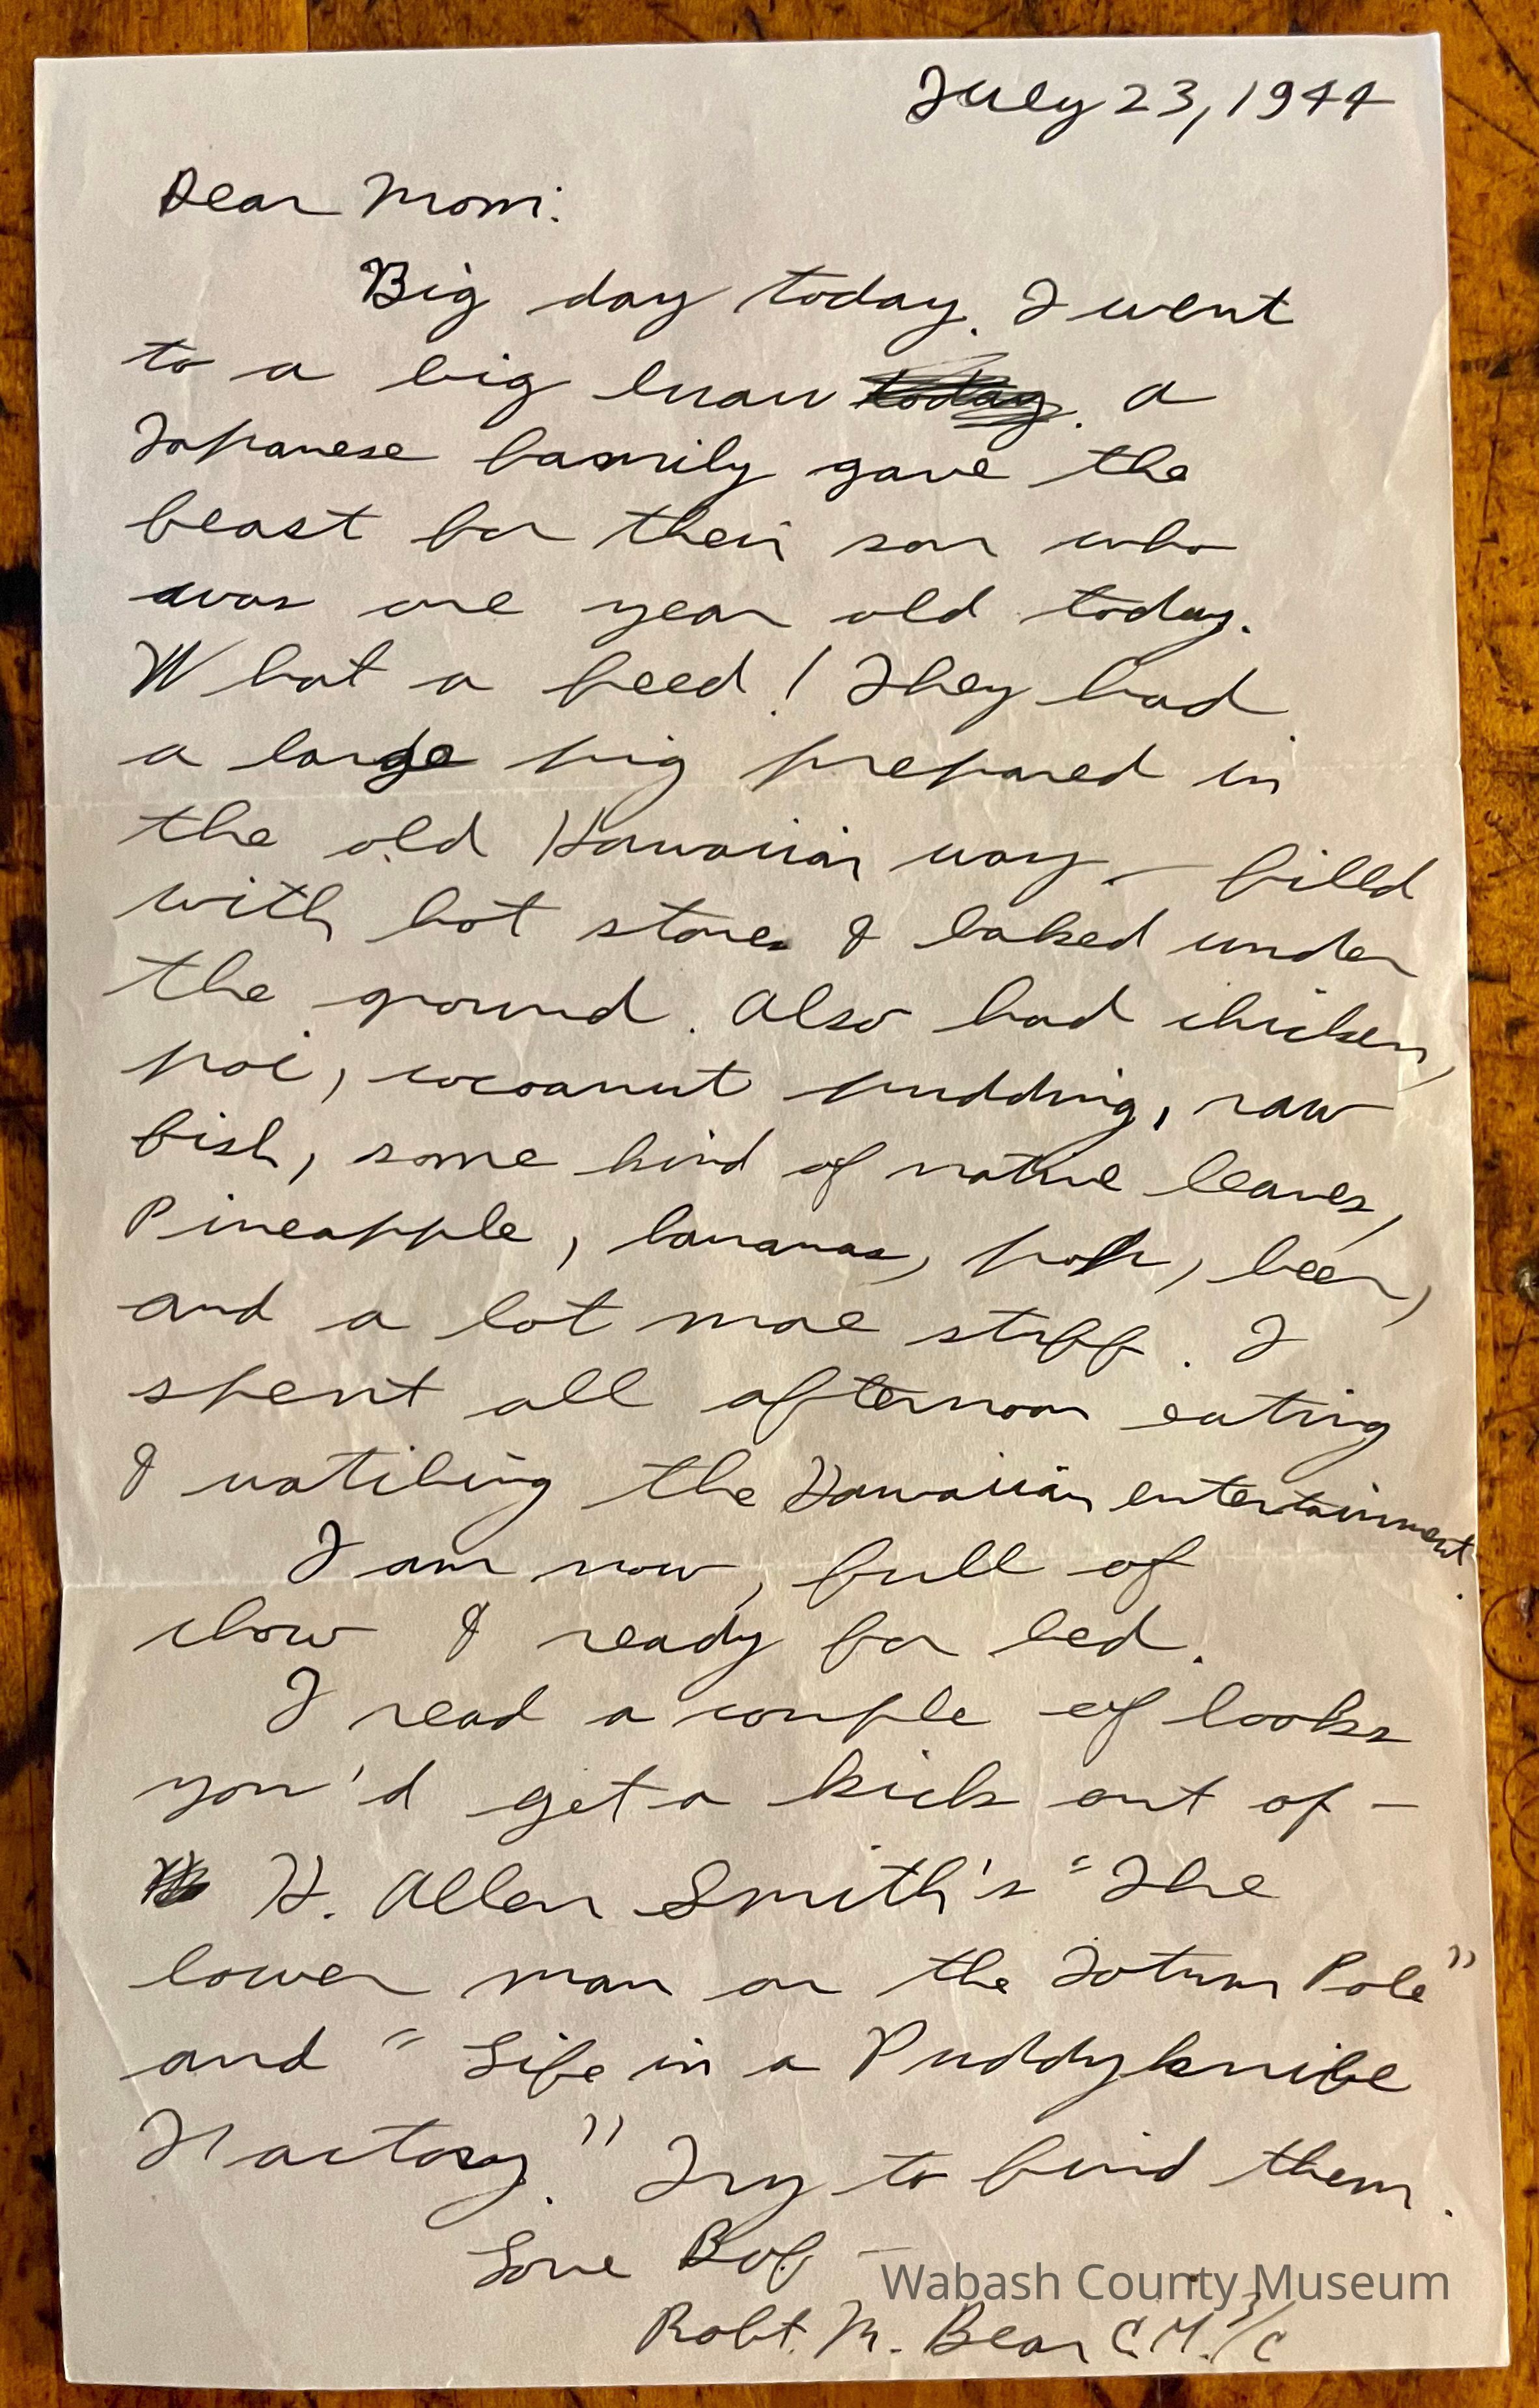 July 23, 1944
Dear Mom:
Big day today. I went
to a big luau today. a
Japanese family gave the
feast for their son who
was one year old today.
What a feed! They had
a large pig prepared in
the old Hawaiian way - filled
with hot stones & baked under
the ground. Also had chicken,
poi, cocoanut pudding, raw
fish, some kind of native leaves,
Pineapple, bananas, pop, beer,
and a lot more stuff. I
spent all afternoon eating
& watching the Hawaiian entertainment.
I am now, full of
chow & ready for bed.
I read a couple of books
you'd get a kick out of -
H. Allen Smith's "The
lower man on the Totum Pole"
and "Life in a Puddyknife
Factory." Try to find them.
Love Bob -
Wabash County Museum
Robt. M. Bear C.M. 3/C